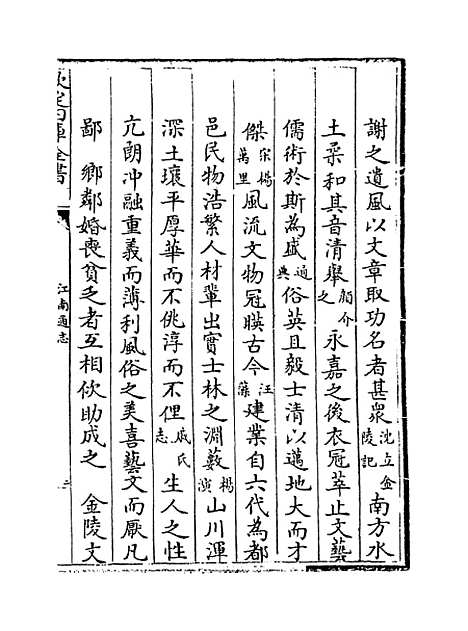 謝之遺風以文章取功名者甚衆沈立金陵記南方水
土柔和其音清舉顏介之永嘉之後衣冠萃止文藝
儒術於斯為盛通典俗英且毅士清以邁地大而才
傑宋楊萬里風流文物冠暎古今汪藻建業自六代為都
邑民物浩繁人材輩出實士林之淵藪楊演山川渾
深土壤平厚華而不佻淳而不俚戚氏志生人之性
亢朗冲融重義而薄利風俗之美喜藝文而厭凡
鄙 鄉鄰婚喪貧乏者互相佽助成之 金陵文
欽定四庫全書
江南通志